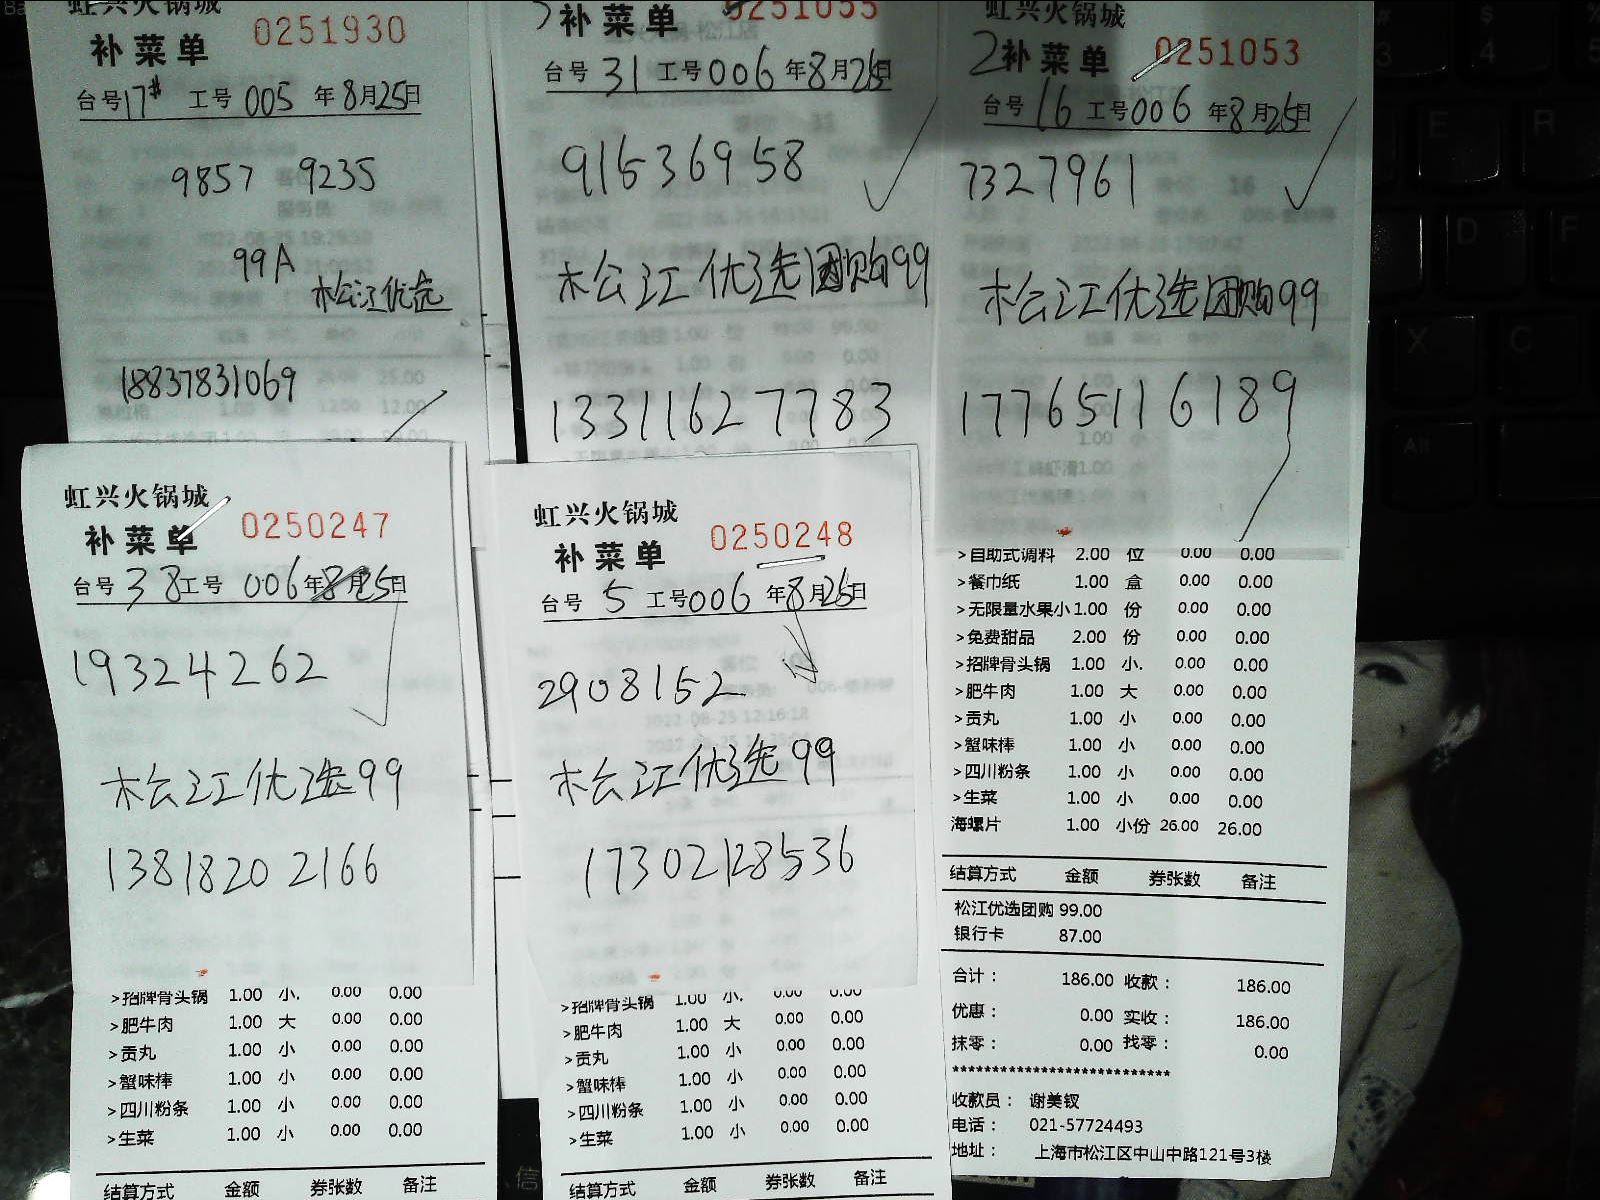 虹兴火锅城
补菜单 0251930
台号17# 工号005 年8月25日
9857 9235
99A
松江优选
18837831069
补菜单 0251055
台号31 工号006 年8月25日
91536958
松江优选团购99
13311627783
虹兴火锅城
2补菜单 0251053
台号16 工号006 年8月25日
7327961
松江优选团购99
17765116189
>自助式调料 2.00 位 0.00 0.00
>餐巾纸 1.00 盒 0.00 0.00
>无限量水果小 1.00 份 0.00 0.00
>免费甜品 2.00 份 0.00 0.00
>招牌骨头锅 1.00 小. 0.00 0.00
>肥牛肉 1.00 大 0.00 0.00
>贡丸 1.00 小 0.00 0.00
>蟹味棒 1.00 小 0.00 0.00
>四川粉条 1.00 小 0.00 0.00
>生菜 1.00 小 0.00 0.00
海螺片 1.00 小份 26.00 26.00
结算方式 金额 券张数 备注
松江优选团购 99.00
银行卡 87.00
合计： 186.00 收款： 186.00
优惠： 0.00 实收： 186.00
抹零： 0.00 找零： 0.00
***************************
收款员： 谢美钗
电话： 021-57724493
地址： 上海市松江区中山中路121号3楼
虹兴火锅城
补菜单 0250247
台号38 工号006 年8月25日
19324262
松江优选99
13818202166
>招牌骨头锅 1.00 小. 0.00 0.00
>肥牛肉 1.00 大 0.00 0.00
>贡丸 1.00 小 0.00 0.00
>蟹味棒 1.00 小 0.00 0.00
>四川粉条 1.00 小 0.00 0.00
>生菜 1.00 小 0.00 0.00
结算方式 金额 券张数 备注
虹兴火锅城
补菜单 0250248
台号5 工号006 年8月25日
2908152
松江优选99
17302128536
>招牌骨头锅 1.00 小. 0.00 0.00
>肥牛肉 1.00 大 0.00 0.00
>贡丸 1.00 小 0.00 0.00
>蟹味棒 1.00 小 0.00 0.00
>四川粉条 1.00 小 0.00 0.00
>生菜 1.00 小 0.00 0.00
结算方式 金额 券张数 备注